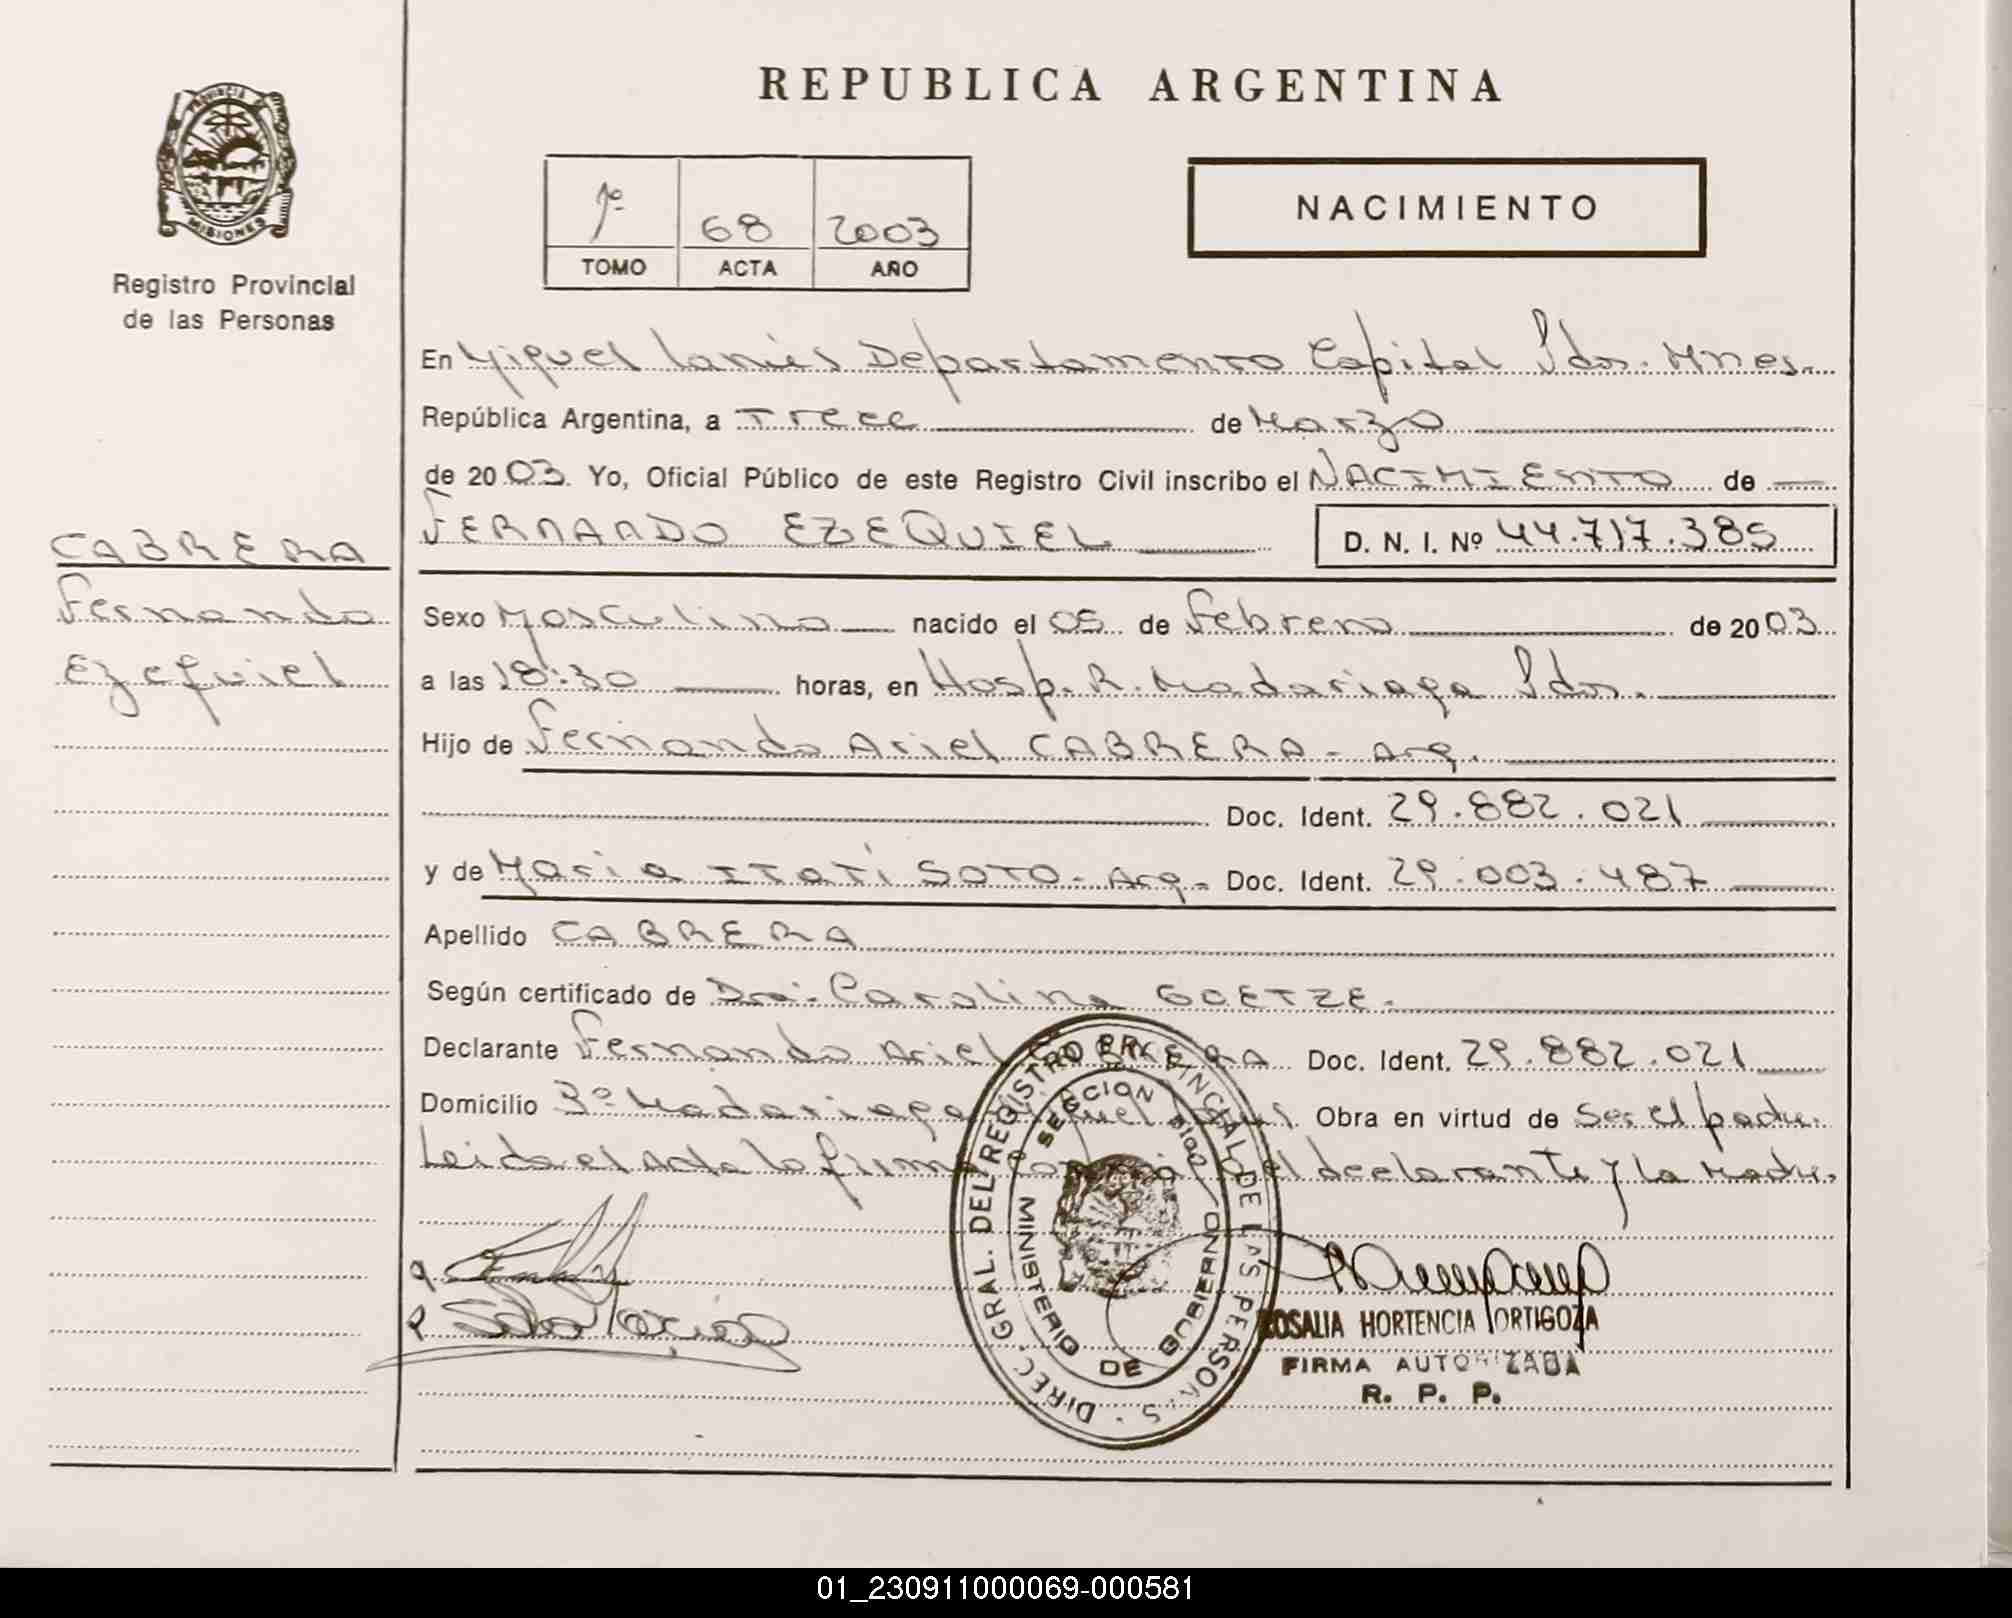 REPUBLICA ARGENTINA
PROVINCIA DE
MISIONES
Registro Provincial
de las Personas
1º 68 2003
TOMO ACTA AÑO
NACIMIENTO
En Miguel Lanús Departamento Capital Pdas. Mnes.
República Argentina, a Trece de Marzo
de 2003 Yo, Oficial Público de este Registro Civil inscribo el NACIMIENTO de
FERNANDO EZEQUIEL D. N. I. Nº 44.717.385
CABRERA
Fernando
Ezequiel
Sexo Masculino nacido el 05 de Febrero de 2003
a las 18:30 horas, en Hosp. R. Madariaga Pdas.
Hijo de Fernando Ariel CABRERA - Arg.
Doc. Ident. 29.882.021
y de Maria ITATÍ SOTO - Arg. Doc. Ident. 29.003.487
Apellido CABRERA
Según certificado de Dra. Carolina GOETZE.
Declarante Fernando Ariel CABRERA Doc. Ident. 29.882.021
Domicilio Bº Madariaga Miguel Lanús Obra en virtud de Ser el padre.
Leida el Acta la firma conmigo el declarante y la Madre.
DIREC. GRAL. DEL REGISTRO PROVINCIAL DE LAS PERSONAS
SECCION
MINISTERIO DE GOBIERNO
ROSALIA HORTENCIA ORTIGOZA
FIRMA AUTORIZADA
R. P. P.
01_230911000069-000581